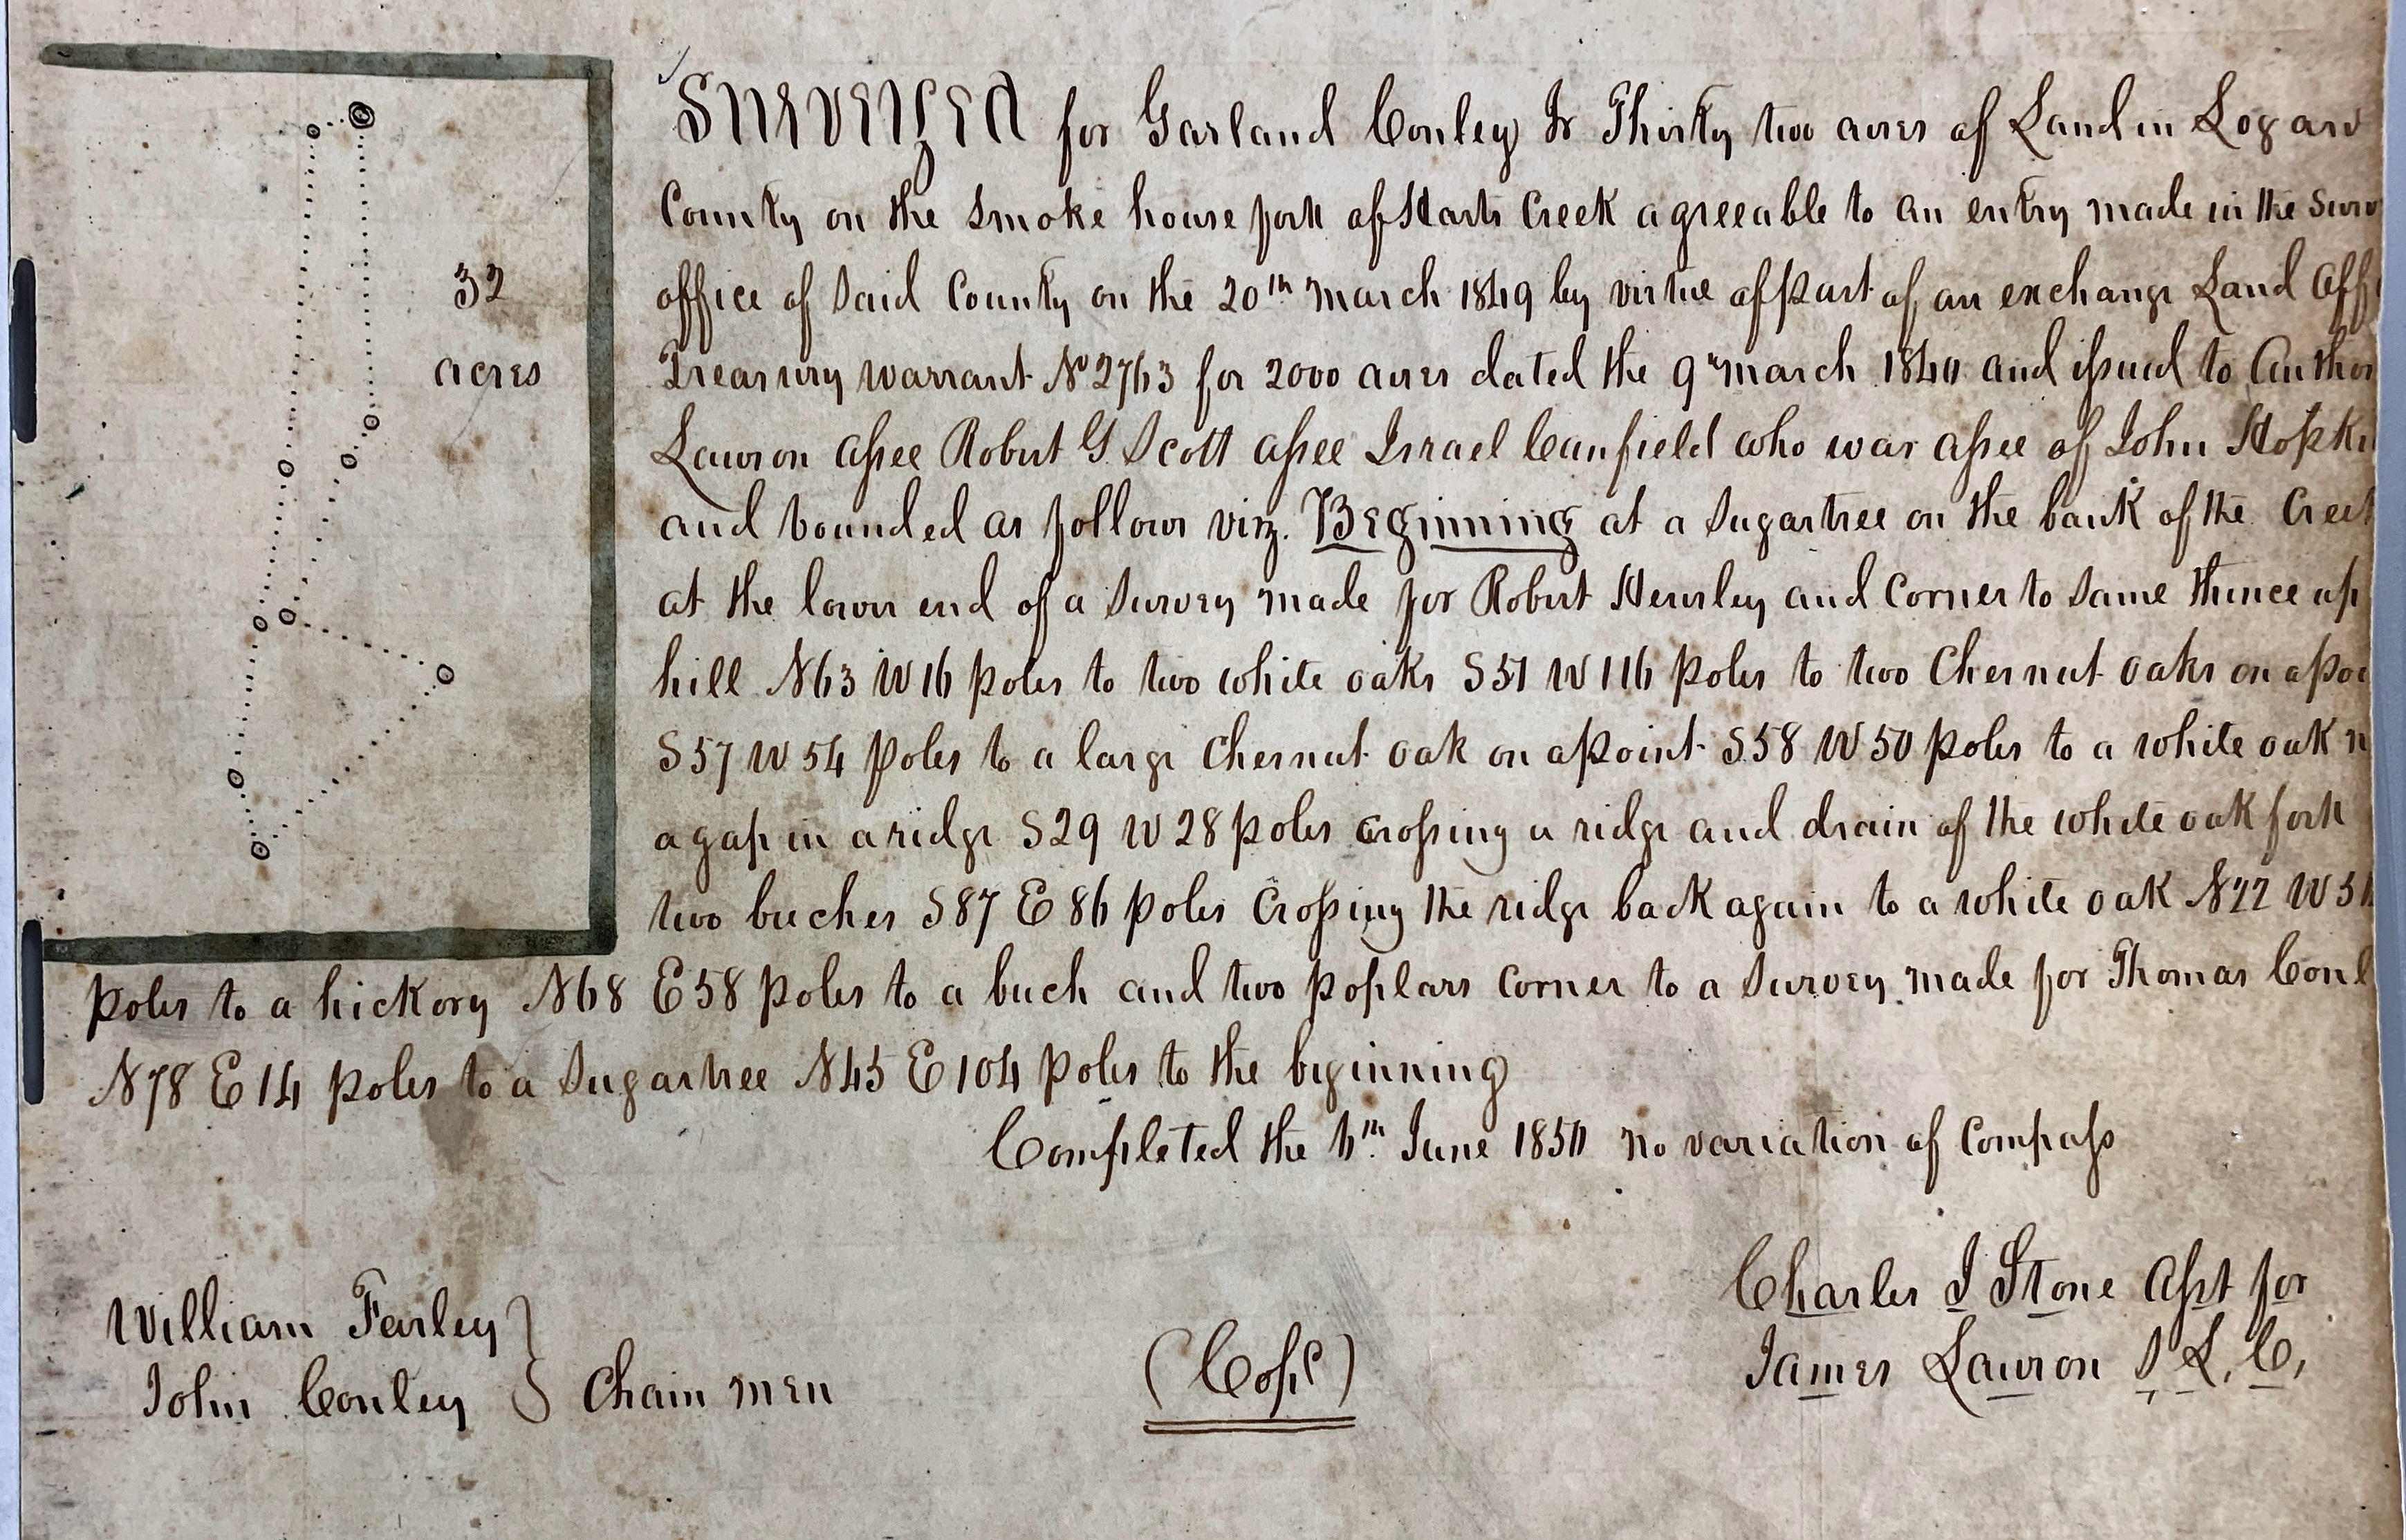 32
acres
SURVEYED for Garland Conley Jr Thirty two acres of Land in Logan
County on the Smoke house fork of Harts Creek agreeable to an entry made in the Surv
office of Said County on the 20th march 1849 by virtue of part of an exchange Land Off
Treasury warrant No 2763 for 2000 acres dated the 9th march 1840 and issued to Anthon
Lawson assee Robert G Scott assee Israel Canfield who was assee of John Hopki
and bounded as follows viz. Beginning at a Sugartree on the bank of the Creek
at the lower end of a Survey made for Robert Hensley and Corner to Same thence up
hill N63 W 16 poles to two white oaks S51 W 116 poles to two Chesnut oaks on a poi
S57 W 54 poles to a large Chesnut oak on a point S58 W 50 poles to a white oak n
a gap in a ridge S29 W 28 poles crossing a ridge and drain of the white oak fork
two beches S87 E 86 poles Crossing the ridge back again to a white oak N22 W
poles to a hickory N68 E 58 poles to a bech and two poplars corner to a Survey made for Thomas Conl
N78 E 14 poles to a Sugartree N45 E 104 poles to the beginning
Completed the 6th June 1850 no variation of Compass
William Farley
John Conley } Chain men
(Copd)
Charles I Stone Asst for
James Lawson S. L. C.